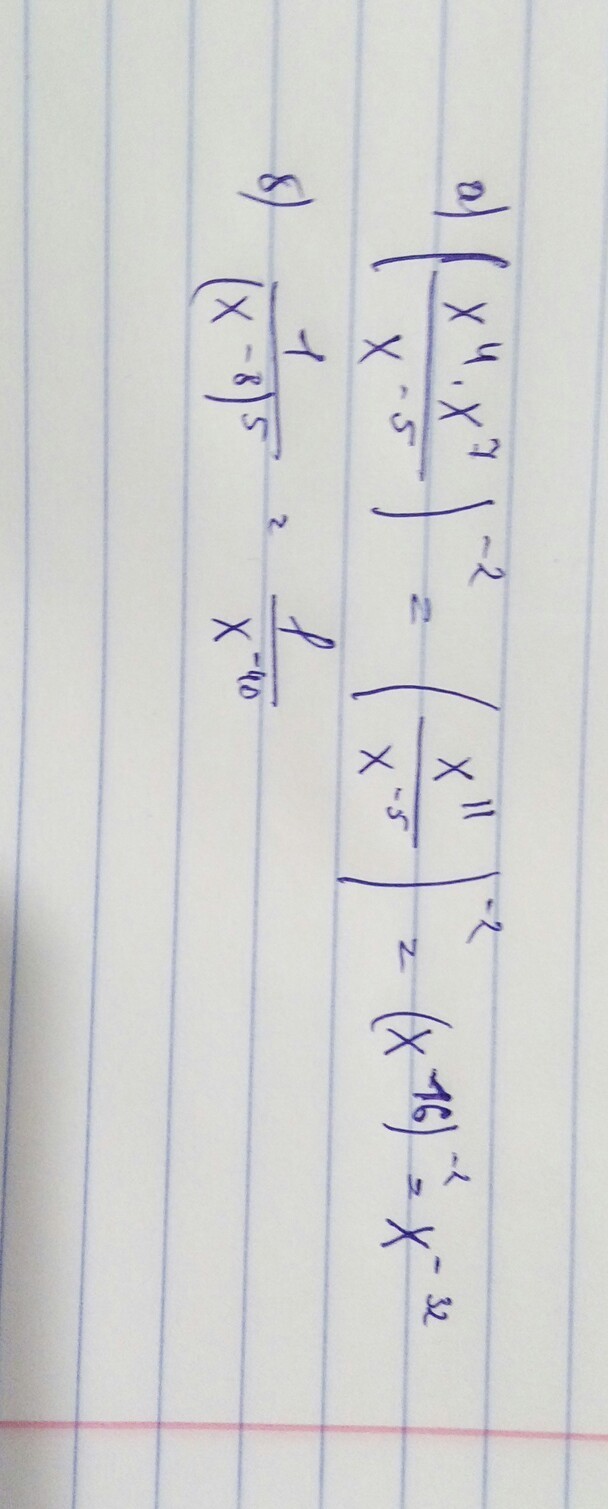 а) (x⁴·x⁷ / x⁻⁵)⁻² = (x¹¹ / x⁻⁵)⁻² = (x¹⁶)⁻² = x⁻³²
б) 1 / (x⁻⁸)⁵ = 1 / x⁻⁴⁰